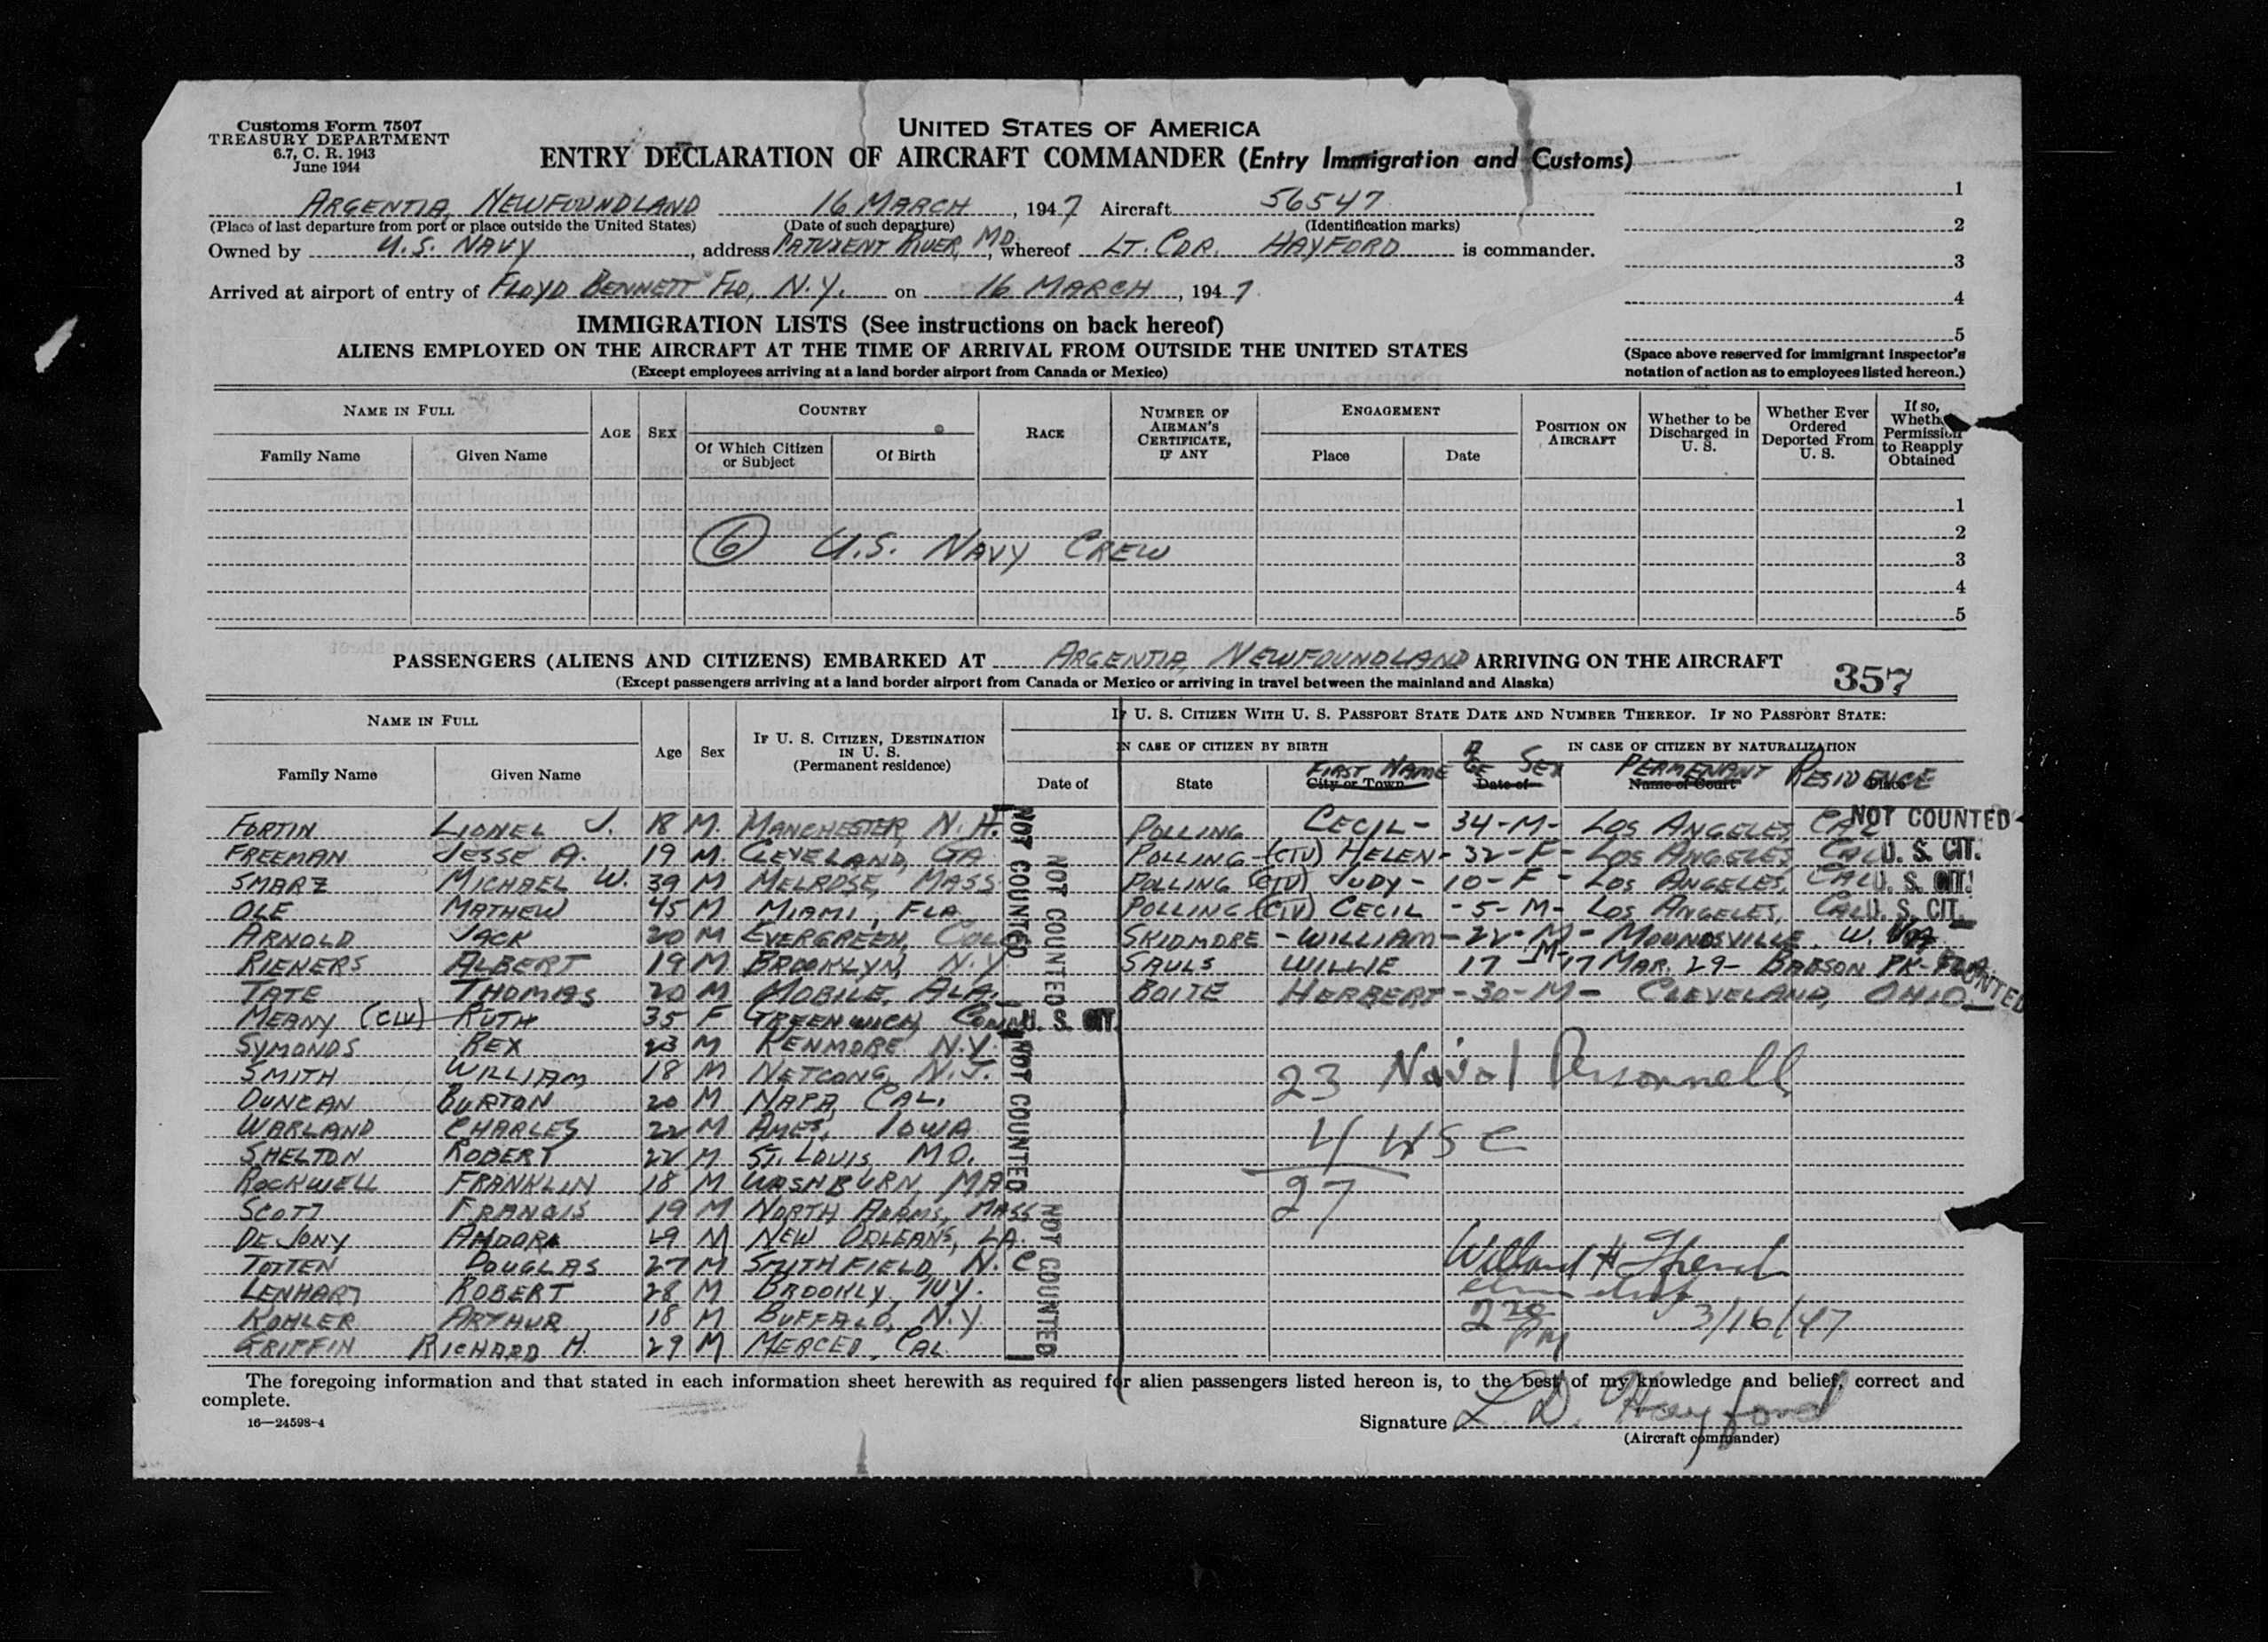 Customs Form 7507
TREASURY DEPARTMENT
6.7, C. R. 1943
June 1944
UNITED STATES OF AMERICA
ENTRY DECLARATION OF AIRCRAFT COMMANDER (Entry Immigration and Customs)
ARGENTIA, NEWFOUNDLAND 16 MARCH, 1947 Aircraft 56547
(Place of last departure from port or place outside the United States) (Date of such departure) (Identification marks)
Owned by U.S. NAVY, address PATUXENT RIVER, MD, whereof LT. CDR. HAYFORD is commander.
Arrived at airport of entry of FLOYD BENNETT FLD, N.Y. on 16 MARCH, 1947
1
2
3
4
5
(Space above reserved for immigrant inspector's
notation of action as to employees listed hereon.)
IMMIGRATION LISTS (See instructions on back hereof)
ALIENS EMPLOYED ON THE AIRCRAFT AT THE TIME OF ARRIVAL FROM OUTSIDE THE UNITED STATES
(Except employees arriving at a land border airport from Canada or Mexico)
NAME IN FULL
Family Name Given Name
AGE SEX
COUNTRY
Of Which Citizen or Subject Of Birth
RACE
NUMBER OF AIRMAN'S CERTIFICATE, IF ANY
ENGAGEMENT
Place Date
POSITION ON AIRCRAFT
Whether to be Discharged in U. S.
Whether Ever Ordered Deported From U. S.
If so, Wheth Permission to Reapply Obtained
1
2
6 U.S. NAVY CREW
3
4
5
PASSENGERS (ALIENS AND CITIZENS) EMBARKED AT ARGENTIA, NEWFOUNDLAND ARRIVING ON THE AIRCRAFT
357
(Except passengers arriving at a land border airport from Canada or Mexico or arriving in travel between the mainland and Alaska)
NAME IN FULL
Family Name Given Name
Age Sex
IF U. S. CITIZEN, DESTINATION IN U. S. (Permanent residence)
IF U. S. CITIZEN WITH U. S. PASSPORT STATE DATE AND NUMBER THEREOF. IF NO PASSPORT STATE:
IN CASE OF CITIZEN BY BIRTH IN CASE OF CITIZEN BY NATURALIZATION
FIRST NAME AGE SEX PERMENANT RESIDENCE
Date of State City or Town Date of Name of Court Place
FORTIN LIONEL J. 18 M. MANCHESTER, N.H. POLLING CECIL - 34 - M - LOS ANGELES, CAL NOT COUNTED
FREEMAN JESSE A. 19 M. CLEVELAND, GA POLLING (CIV) HELEN - 32 - F - LOS ANGELES, CAL U. S. CIT.
SMARZ MICHAEL W. 39 M MELROSE, MASS POLLING (CIV) JUDY - 10 - F - LOS ANGELES, CAL U. S. CIT.
OLE MATHEW 45 M MIAMI, FLA POLLING (CIV) CECIL - 5 - M - LOS ANGELES, CAL U. S. CIT.
ARNOLD JACK 20 M EVERGREEN, COLO SKIDMORE - WILLIAM - 22 - M - MOUNDSVILLE, W. VA
RIENERS ALBERT 19 M BROOKLYN, N.Y. SAULS WILLIE 17 - M - 17 MAR. 29 - BABSON PK - FLA.
TATE THOMAS 20 M MOBILE, ALA. BOITE HERBERT - 30 - M - CLEVELAND, OHIO
MEANY (CIV) RUTH 35 F GREENWICH, CONN U. S. CIT.
SYMONDS REX 23 M KENMORE N.Y.
SMITH WILLIAM 18 M NETCONG, N.J. 23 Naval Personnell
DUNCAN BURTON 20 M NAPA, CAL.
WARLAND CHARLES 22 M AMES, IOWA 4 USC
SHELTON ROBERT 22 M ST. LOUIS, MO.
ROCKWELL FRANKLIN 18 M WASHBURN, MA 27
SCOTT FRANCIS 19 M NORTH ADAMS, MASS
DEJONY 29 M NEW ORLEANS, LA.
TOTTEN DOUGLAS 27 M SMITHFIELD, N.C.
LENHART ROBERT 28 M BROOKLY, NY.
KOHLER ARTHUR 18 M BUFFALO, N.Y. 2 30 PM 3/16/47
GRIFFIN RICHARD H. 29 M MERCED, CAL
NOT COUNTED
NOT COUNTED
NOT COUNTED
NOT COUNTED
The foregoing information and that stated in each information sheet herewith as required for alien passengers listed hereon is, to the best of my knowledge and belief, correct and
complete.
16—24598-4
Signature L. D. Hayford
(Aircraft commander)